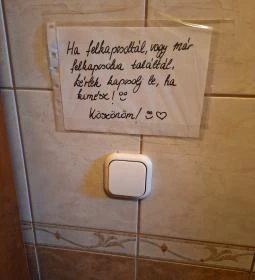 Ha felkapcsoltál, vagy már
felkapcsolva találtál,
kérlek kapcsolj le, ha
kimész! ☺
Köszönöm! ☺♡